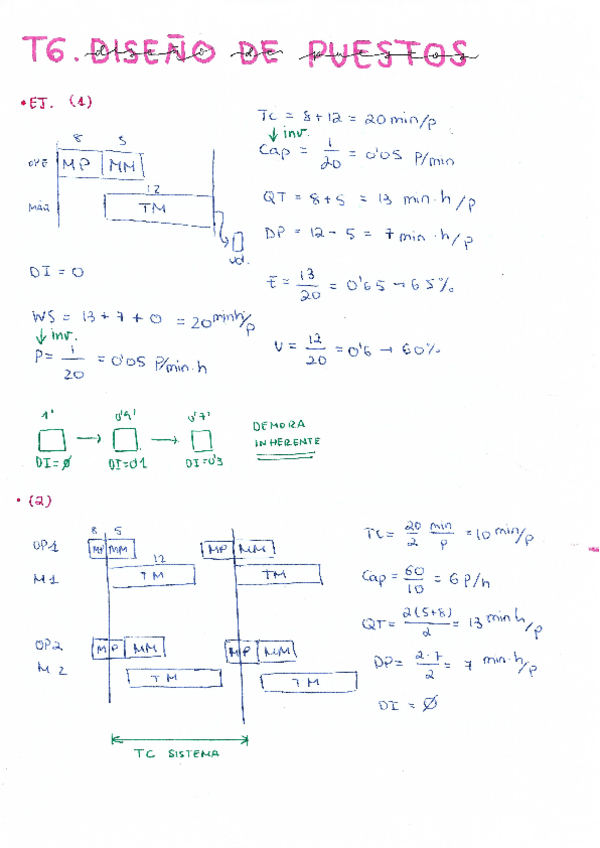 T6. DISEÑO DE PUESTOS
diseño de puestos
• EJ. (1)
8 5
OPE MP MM
12
MÁQ TM
ud.
DI = 0
WS = 13 + 7 + 0 = 20 min h/p
↓ inv.
P = 1/20 = 0'05 P/min.h
TC = 8 + 12 = 20 min/p
↓ inv.
Cap = 1/20 = 0'05 P/min
QT = 8 + 5 = 13 min.h/p
DP = 12 - 5 = 7 min.h/p
t = 13/20 = 0'65 → 65%
U = 12/20 = 0'6 → 60%
1' → 0'9' → 0'7'
DI = ∅ DI = 0'1 DI = 0'3
DEMORA
INHERENTE
• (2)
8 5
OP1 MP MM MP MM
12
M1 TM TM
OP2 MP MM MP MM
M2 TM TM
TC SISTEMA
TC = 20/2 min/p = 10 min/p
Cap = 60/10 = 6 P/h
QT = 2(5+8)/2 = 13 min h/p
DP = 2·7/2 = 7 min.h/p
DI = ∅